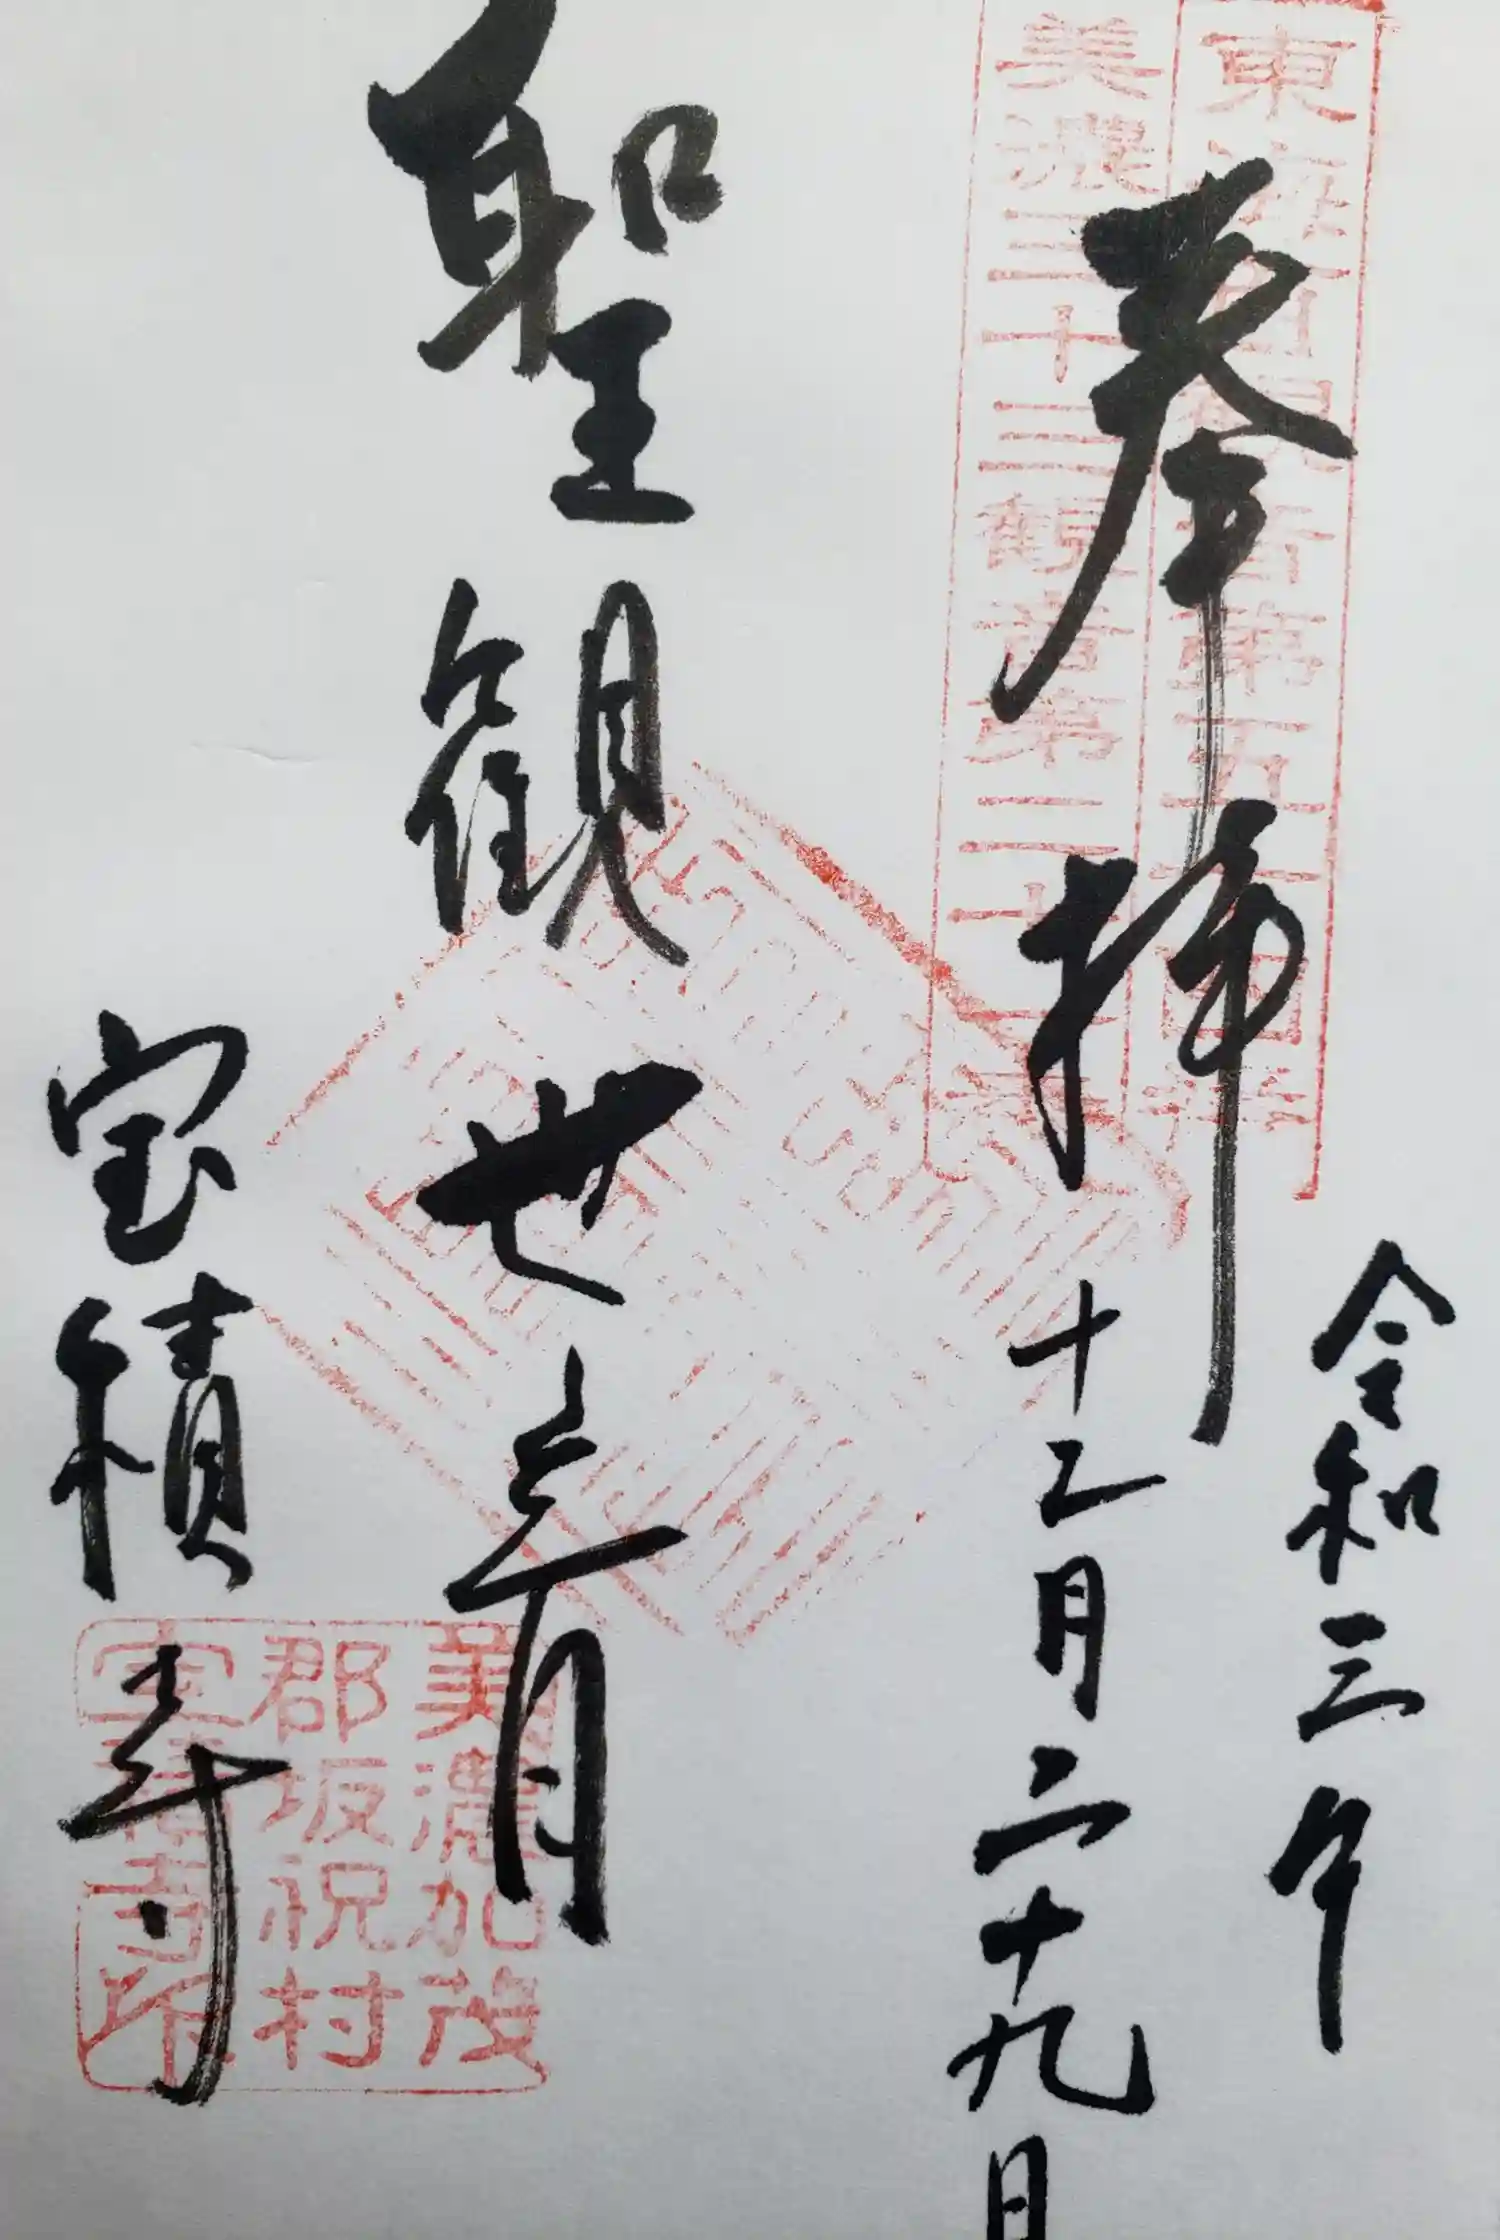 東海百観音第五十四番
美濃三十三観音第二十一番
奉拝
令和三年
十二月二十九日
聖観世音
宝積寺
美濃加茂
郡坂祝村
宝積寺印